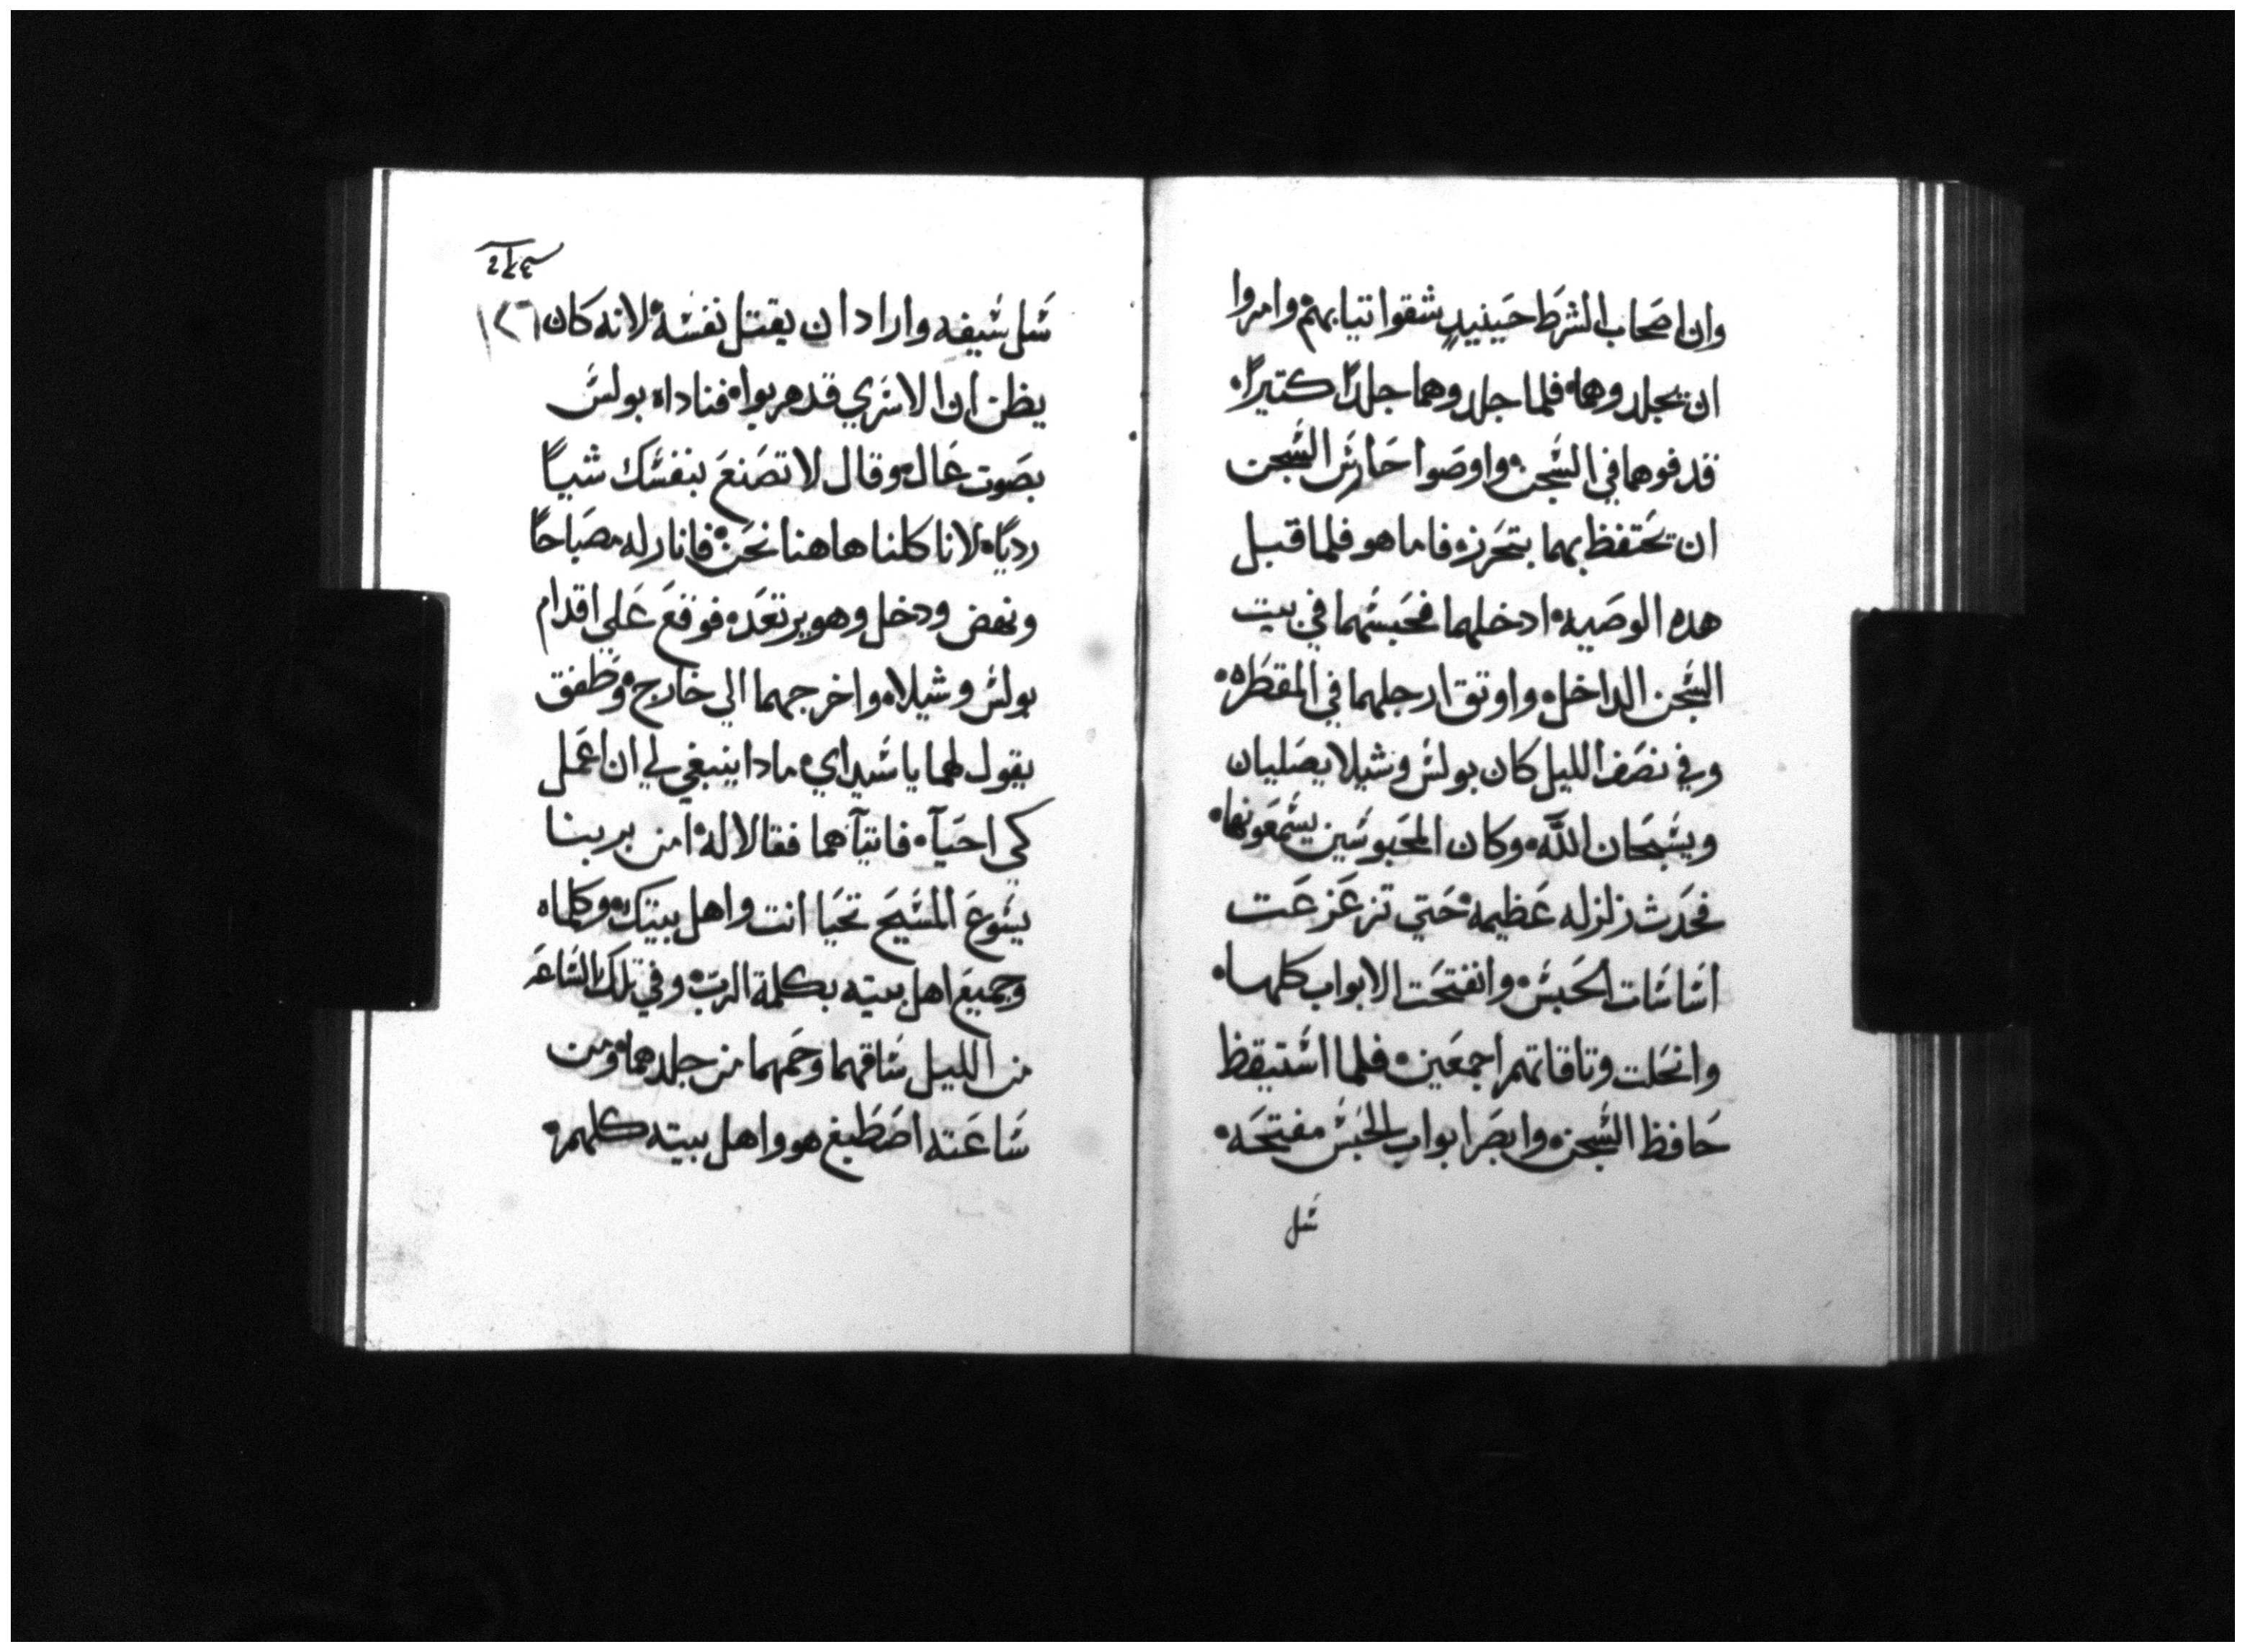 وان اصحاب الشرط حينيد شقوا تيابهم وامروا
ان يجلدوهما فلما جلدوهما جلدًا كتيرًا
قدفوهما في السجن واوصوا حارس السجن
ان يحتفظ بهما بتحرز فاما هو فلما قبل
هده الوصيه ادخلهما فحبسهما في بيت
السجن الداخل واوتق ارجلهما في المقطره
وفي نصف الليل كان بولس وشيلا يصليان
ويسبحان اللَّه وكان المحبوسين يسمعونهما
فحدث زلزله عظيمه حتي تزعزعت
اساسات الحبس وانفتحت الابواب كلها
وانحلت وتاقاتهم اجمعين فلما استيقظ
حافظ السجن وابصر ابواب الحبس مفتحه
سل
سل سيفه واراد ان يقتل نفسه لانه كان
١٢٦
يظن ان الاسري قد هربوا فناداه بولس
بصوت عال وقال لا تصنع بنفسك شياً
رديًا لانا كلنا هاهنا نحن فانار له مصباحًا
ونهض ودخل وهو يرتعد فوقع علي اقدام
بولس وشيلا واخرجهما الي خارج وطفق
يقول لهما يا سيداي مادا ينبغي لي ان اعمل
كي احيآ فاتيآهما فقالا له امن بربنا
يسوع المسيح تحيا انت واهل بيتك وكلماه
وجميع اهل بيته بكلمة الرب وفي تلك الساعه
من الليل ساقهما وحمهما من جلدهما ومن
ساعته اصطبغ هو واهل بيته كلهم